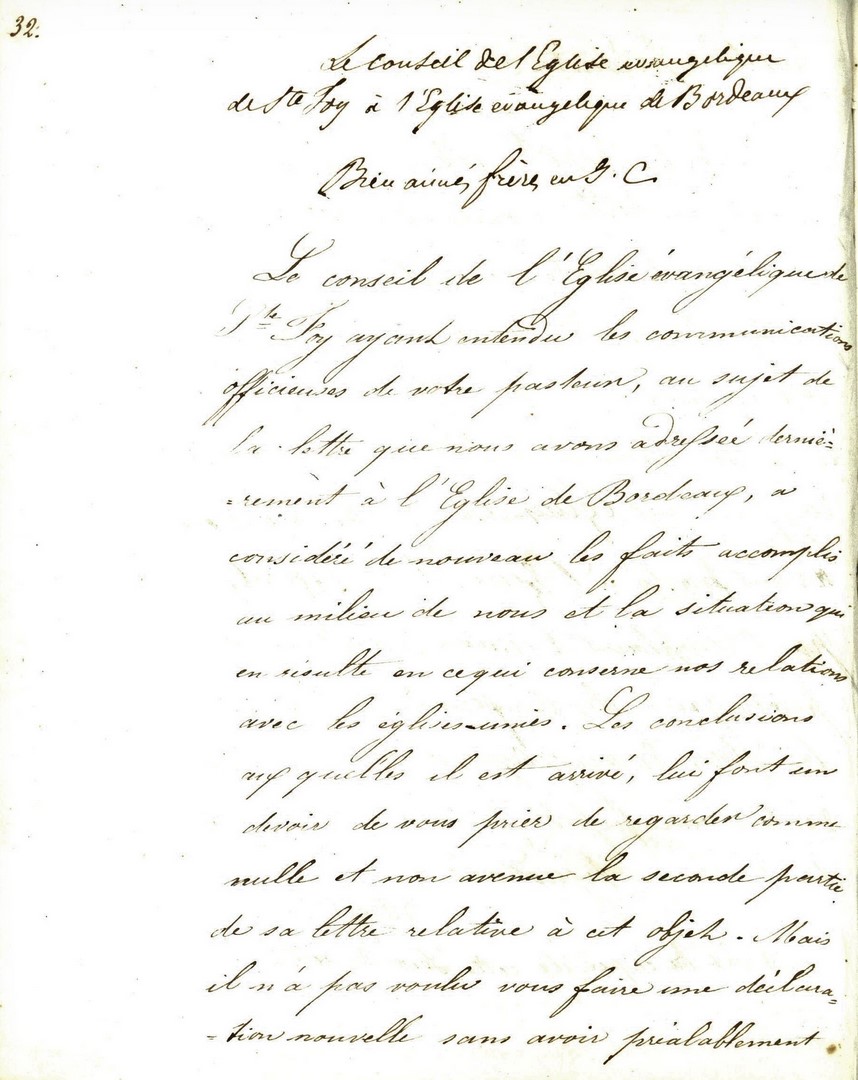 32.
Le conseil de l'Eglise evangelique
de Ste Foy à l'Eglise evangelique de Bordeaux
Bien aimés frères en J. C
Le conseil de l'Eglise évangélique de
Ste Foy ayant entendu les communications
officieuses de votre pasteur, au sujet de
la lettre que nous avons adressée derniè=
=rement à l'Eglise de Bordeaux, a
considéré de nouveau les faits accomplis
au milieu de nous et la situation qui
en résulte en ce qui conserne nos relations
avec les églises-unies. Les conclusions
aux quelles il est arrivé, lui font un
devoir de vous prier de regarder comme
nulle et non avenue la seconde partie
de sa lettre relative à cet objet. Mais
il n'a pas voulu vous faire une déclara=
=tion nouvelle sans avoir préalablement